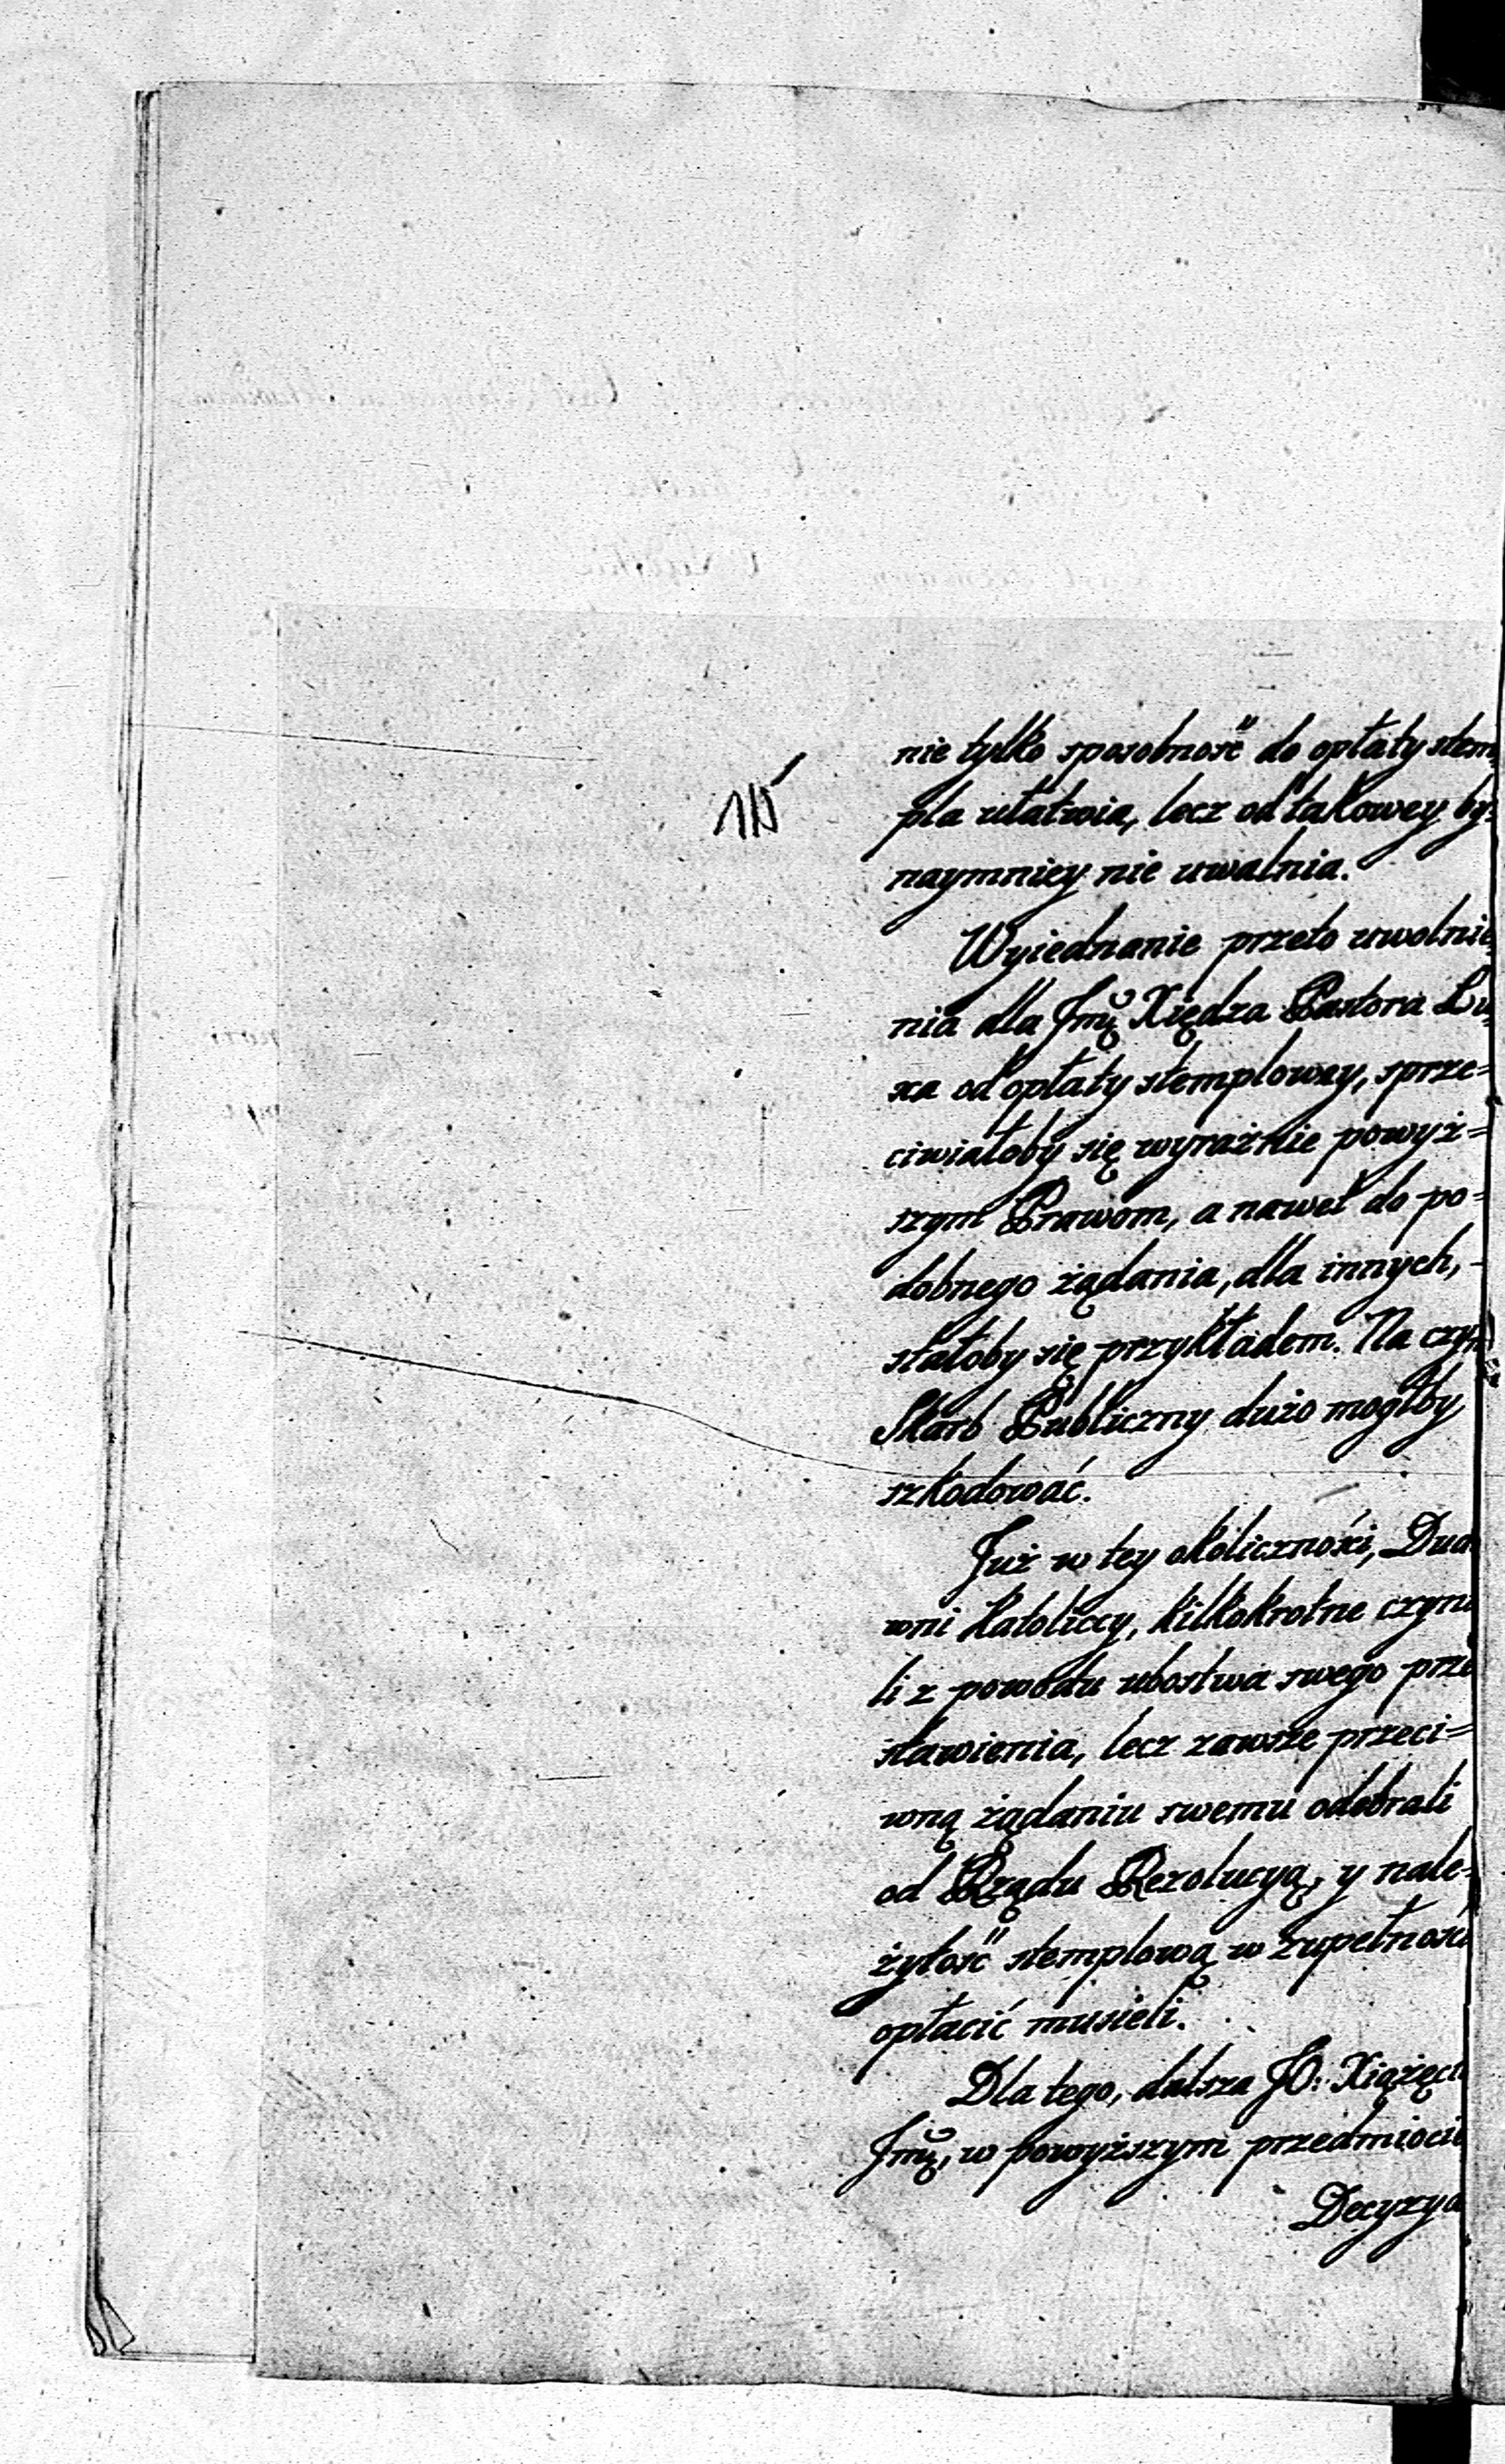 nie tylko sposobność do opłaty stem
pla ułatwia, lecz od takowey by=
naymniey nie uwalnia.
Wyiednanie przeto uwolnie
nia dla Jmę Xiędza Pastora Lu
xa od opłaty stemplowey, sprze=
ciwiałoby się wyraźnie powyż=
szym Prawom, a nawet do po=
dobnego żądania, dla innych,
stałoby się przykładem. Na czym
Skarb Publiczny dużo mogłby
szkodować.
Już w tey okoliczności, Duo
wni Katoliccy, kilkokrotne czyni
li z powodu ubostwa swego prze
stawienia, lecz zawsze przeci=
wną żądaniu swemu odebrali
od Rządu Rezolucyą, y nale=
żytość stemplową w zupełności
opłacić musieli.
Dla tego, dalsza JO: Xiążęci
Jmę, w powyższym przedmiocie
Decyzya